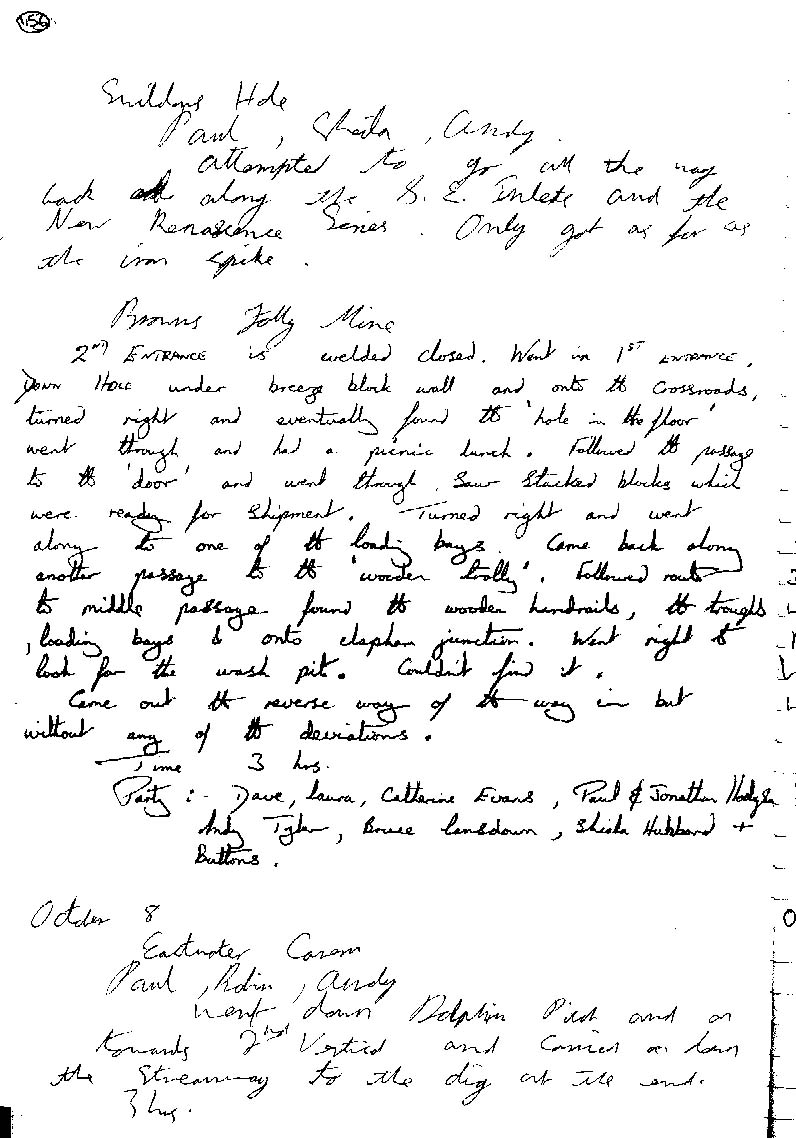 156
Swildons Hole
Paul, Sheila, Andy.
Attempted to go all the way
back along the S.E. Inlets and the
New Renascence Series. Only got as far as
the iron spike.
Browns Folly Mine
2ND ENTRANCE is welded closed. Went in 1ST ENTRANCE,
DOWN HOLE under breeze block wall and onto the Crossroads,
turned right and eventually found the 'hole in the floor'
went through and had a picnic lunch. Followed the passage
to the 'door' and went through. Saw Stacked blocks which
were ready for shipment. Turned right and went
along to one of the loading bays. Came back along
another passage to the 'wooden trolly'. Followed route
to middle passage found the wooden handrails, the troughs
, loading bays & onto clapham junction. Went right to
look for the wash pit. Couldn't find it.
Came out the reverse way of the way in but
without any of the deviations.
Time 3 hrs.
Party :- Dave, Laura, Catherine Evans, Paul & Jonathan Hodgson
Andy Tyler, Bruce Lansdown, Sheila Hubbard +
Buttons.
October 8
Eastwater Cavern
Paul, Robin, Andy
Went down Dolphin Pitch and on
towards 2nd Vertical and carried on down
the Streamway to the dig at the end.
3 hrs.